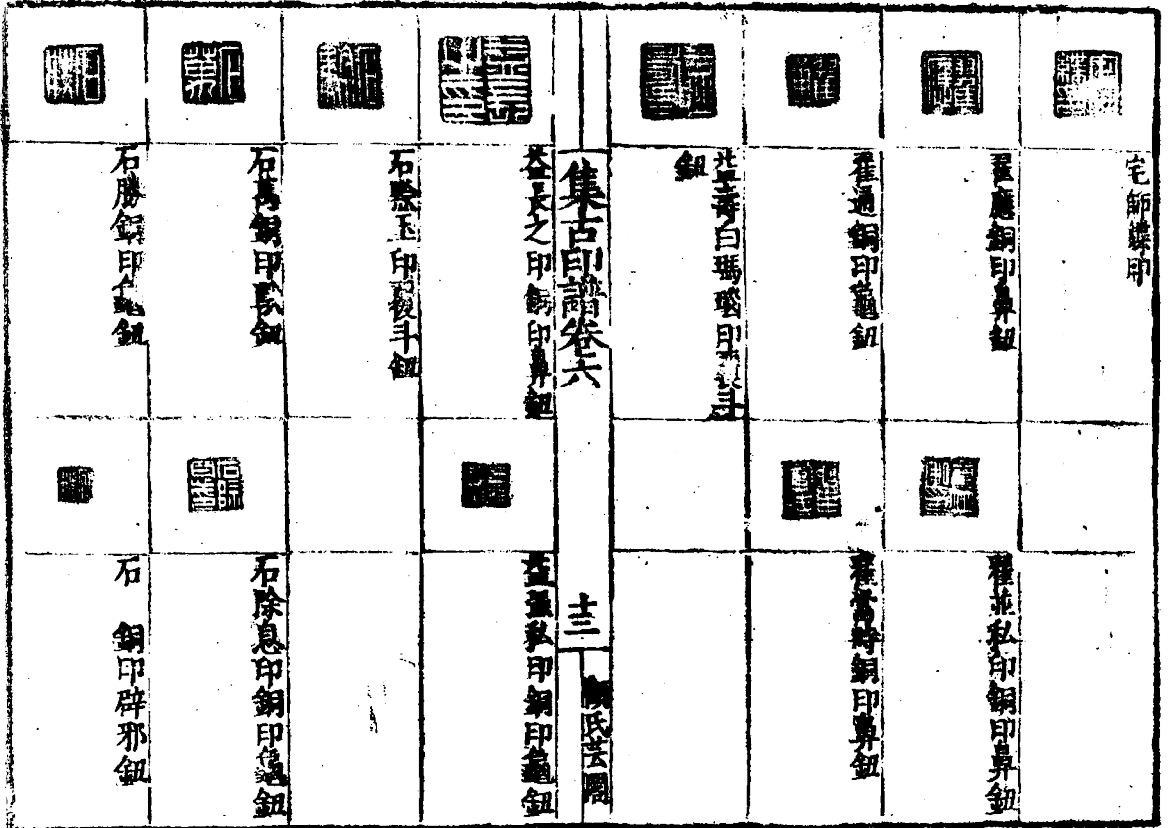 宅師蝶印
翟應銅印鼻鈕
翟通銅印龜鈕
益壽曰瑪瑙印覆斗
鈕
翟並私印銅印鼻鈕
翟當時銅印鼻鈕
集古印譜卷六
十三
顧氏芸閣
益長之印銅印鼻鈕
石縣玉印覆斗鈕
石萬銅印獸鈕
石勝銅印龜鈕
益彊私印銅印龜鈕
石除息印銅印龜鈕
石 銅印辟邪鈕